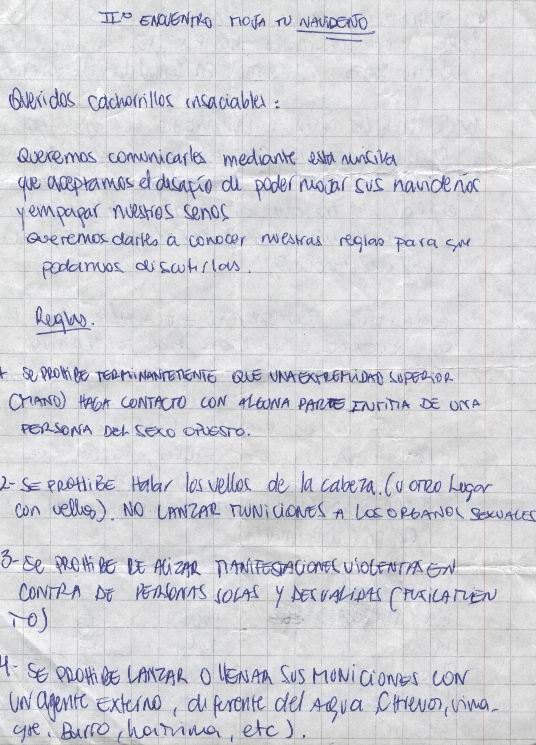 IIº ENCUENTRO MOJA TU NAVIDEÑO
Queridos cachorrillos insaciables:
Queremos comunicarles mediante esta misiva
que aceptamos el desafío de poder mojar sus navideños
y empapar nuestros senos
Queremos darles a conocer nuestras reglas para que
podamos discutirlas.
Reglas.
1 SE PROHIBE TERMINANTEMENTE QUE UNA EXTREMIDAD SUPERIOR
(MANO) HAGA CONTACTO CON ALGUNA PARTE INTIMA DE UNA
PERSONA DEL SEXO OPUESTO.
2- SE PROHIBE Halar los vellos de la cabeza. (u otro Lugar
con vellos). NO LANZAR MUNICIONES A LOS ORGANOS SEXUALES
3- SE PROHIBE REALIZAR MANIFESTACIONES VIOLENTAS EN
CONTRA DE PERSONAS SOLAS Y DESVALIDAS (FUSILAMIEN
TO)
4- SE PROHIBE LANZAR O LLENAR SUS MUNICIONES CON
UN agente EXTERNO, diferente del AQUA (Huevos, vina-
gre, Barro, harina, etc).